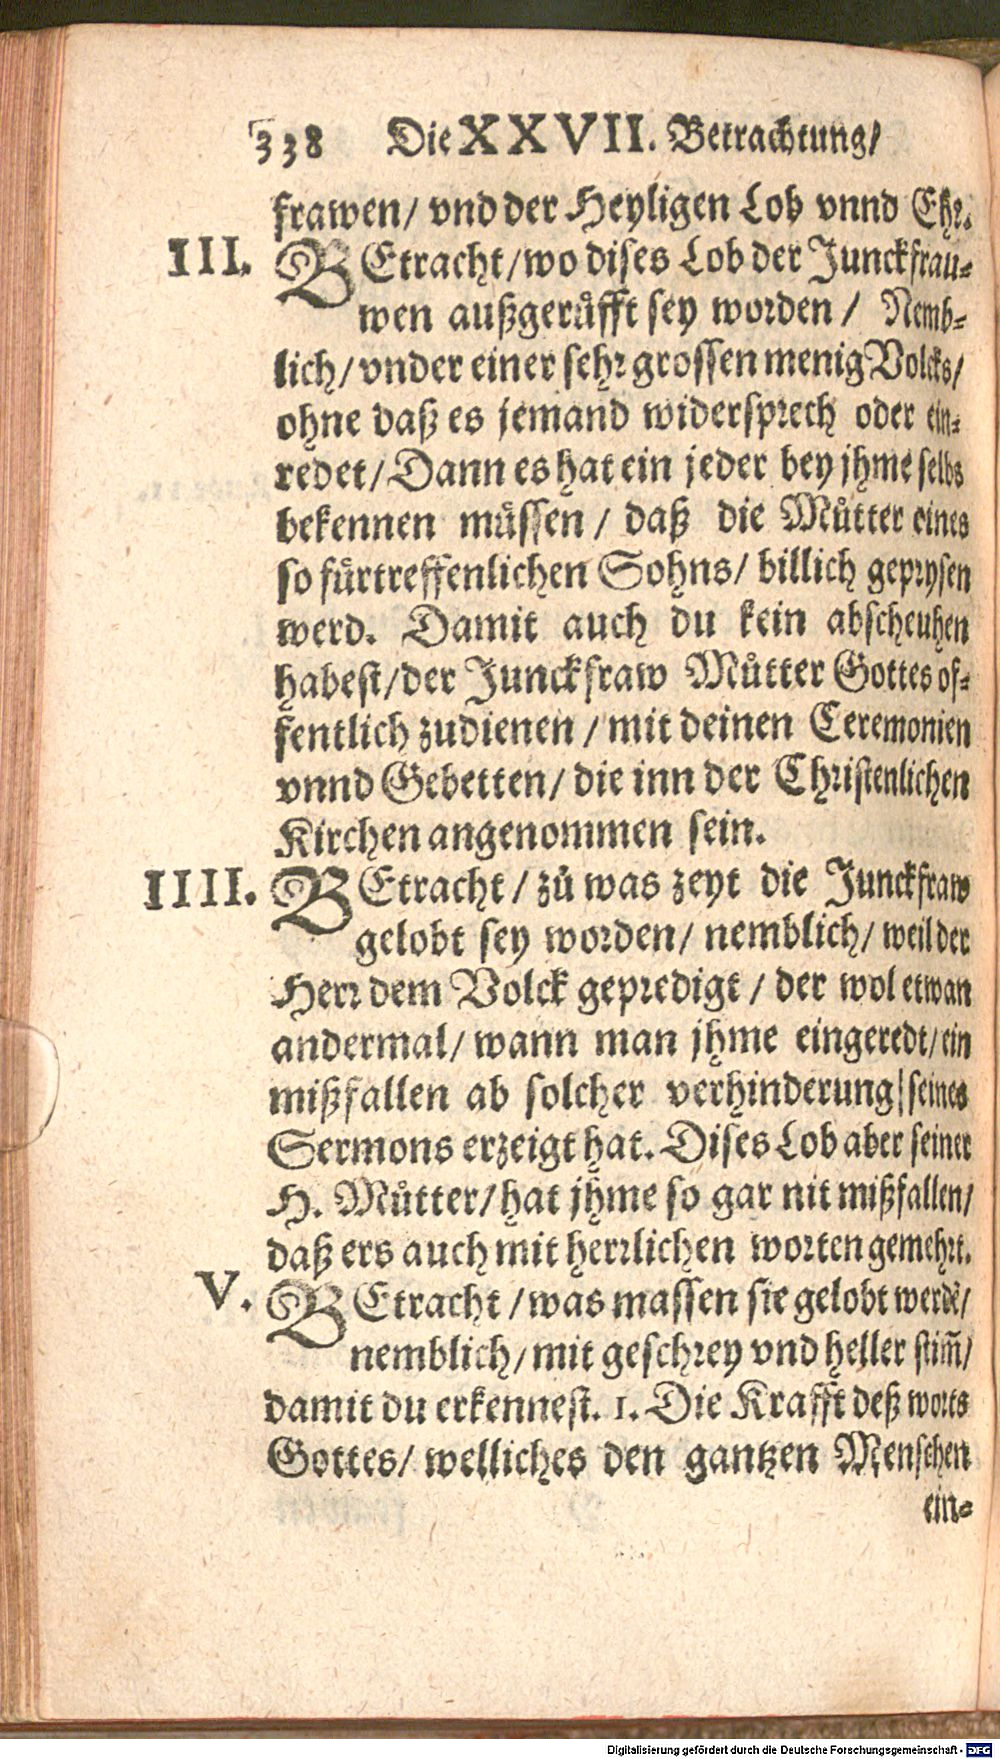 338 Die XXVII. Betrachtung/
frawen/ vnd der Heyligen Lob vnnd Ehr.
III. BEtracht/ wo dises Lob der Junckfrau-
wen außgerůfft sey worden / Nemb-
lich/ vnder einer sehr grossen menig Volcks/
ohne daß es jemand widersprech oder ein-
redet/ Dann es hat ein jeder bey jhme selbs
bekennen müssen / daß die Můtter eines
so fürtreffenlichen Sohns/ billich geprysen
werd. Damit auch du kein abscheuhen
habest/ der Junckfraw Můtter Gottes of-
fentlich zudienen / mit deinen Ceremonien
vnnd Gebetten/ die inn der Christenlichen
Kirchen angenommen sein.
IIII. BEtracht / zů was zeyt die Junckfraw
gelobt sey worden/ nemblich/ weil der
Herr dem Volck gepredigt / der wol etwan
andermal/ wann man jhme eingeredt/ ein
mißfallen ab solcher verhinderung/ seines
Sermons erzeigt hat. Dises Lob aber seiner
H. Můtter/ hat jhme so gar nit mißfallen/
daß ers auch mit herrlichen worten gemehrt.
V. BEtracht / was massen sie gelobt werdē/
nemblich/ mit geschrey vnd heller stim̄/
damit du erkennest. 1. Die Krafft deß worts
Gottes/ welliches den gantzen Menschen
ein-
Digitalisierung gefördert durch die Deutsche Forschungsgemeinschaft - DFG